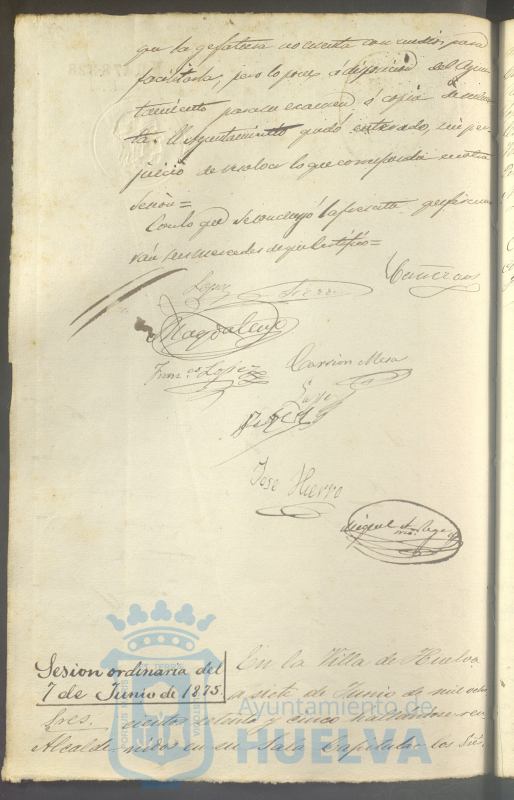 que la gefatura no cuenta con medios para
facilitarla, pero lo pone á disposicion del Ayun
tamiento para su examen ó copia
El Ayuntamiento quedó enterado, sin per
juicio de resolver lo que corresponda en otra
Sesion=
Con lo que se concluyó la presente que firma
rán sus mercedes de que certifico=
Lopez Hierro
Magdaleno
Franco Lopez Carrion Mesa
Jose Hierro
Miguel
Sesion ordinaria del
7 de Junio de 1875.
En la Villa de Huelva
a siete de Junio de mil ocho
Sres. cientos setenta y cinco
Alcalde en su Sala Capitular los Sres.
Ayuntamiento de
HUELVA